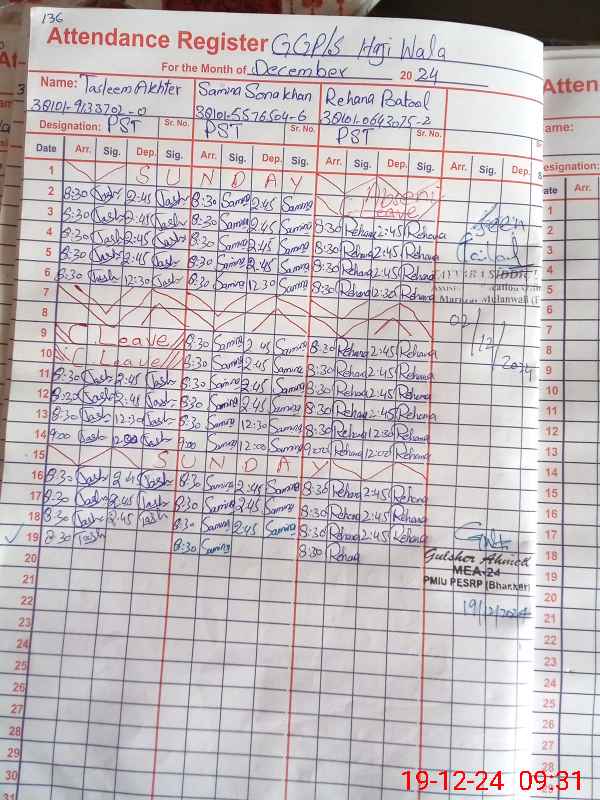 136
Attendance Register GGP/S Haji Wala
For the Month of December 2024
Name: Tasleem Akhter Samina Sona khan Rehana Batool
38101-9133702-0 38101-5576504-6 38101-0643075-2
Designation: PST Sr. No. PST Sr. No. PST Sr. No.
Date Arr. Sig. Dep. Sig. Arr. Sig. Dep. Sig. Arr. Sig. Dep. Sig. Arr. Sig. Dep.
1 SUNDAY
2 8:30 Tash 2:45 Tash 8:30 Samina 2:45 Samina Leave
3 8:30 Tash 2:45 Tash 8:30 Samina 2:45 Samina 8:30 Rehana 2:45 Rehana
4 8:30 Tash 2:45 Tash 8:30 Samina 2:45 Samina 8:30 Rehana 2:45 Rehana
5 8:30 Tash 2:45 Tash 8:30 Samina 2:45 Samina 8:30 Rehana 2:45 Rehana
6 8:30 Tash 12:30 Tash 8:30 Samina 12:30 Samina 8:30 Rehana 12:30 Rehana
7
8
9 C. Leave 8:30 Samina 2:45 Samina 8:30 Rehana 2:45 Rehana
10 C. Leave 8:30 Samina 2:45 Samina 8:30 Rehana 2:45 Rehana
11 8:30 Tash 2:45 Tash 8:30 Samina 2:45 Samina 8:30 Rehana 2:45 Rehana
12 8:30 Tash 2:45 Tash 8:30 Samina 2:45 Samina 8:30 Rehana 2:45 Rehana
13 8:30 Tash 12:30 Tash 8:30 Samina 12:30 Samina 8:30 Rehana 12:30 Rehana
14 9:00 Tash 12:00 Tash 9:00 Samina 12:00 Samina 9:00 Rehana 12:00 Rehana
15 SUNDAY
16 8:30 Tash 2:45 Tash 8:30 Samina 2:45 Samina 8:30 Rehana 2:45 Rehana
17 8:30 Tash 2:45 Tash 8:30 Samina 2:45 Samina 8:30 Rehana 2:45 Rehana
18 8:30 Tash 2:45 Tash 8:30 Samina 2:45 Samina 8:30 Rehana 2:45 Rehana
19 8:30 Tash 8:30 Samina 8:30 Rehana
20
21
22
23
24
25
26
27
28
29
30
31
Seen
02/12/2024
Gulsher Ahmed
MEA-24
PMIU PESRP (Bhakkar)
19/12/2024
Atten
ame:
esignation:
ate Arr.
1
2
3
4
5
6
7
8
9
10
11
12
13
14
15
16
17
18
19
20
21
22
23
24
25
26
27
28
19-12-24 09:31